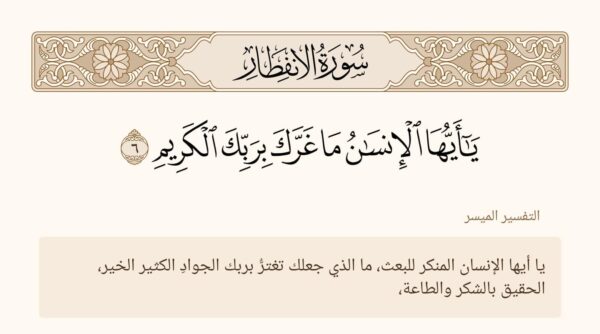 سُورَةُ الانفِطَارِ
يَـٰٓأَيُّهَا ٱلْإِنسَـٰنُ مَا غَرَّكَ بِرَبِّكَ ٱلْكَرِيمِ ٦
التفسير الميسر
يا أيها الإنسان المنكر للبعث، ما الذي جعلك تغترُّ بربك الجوادِ الكثير الخير،
الحقيق بالشكر والطاعة،